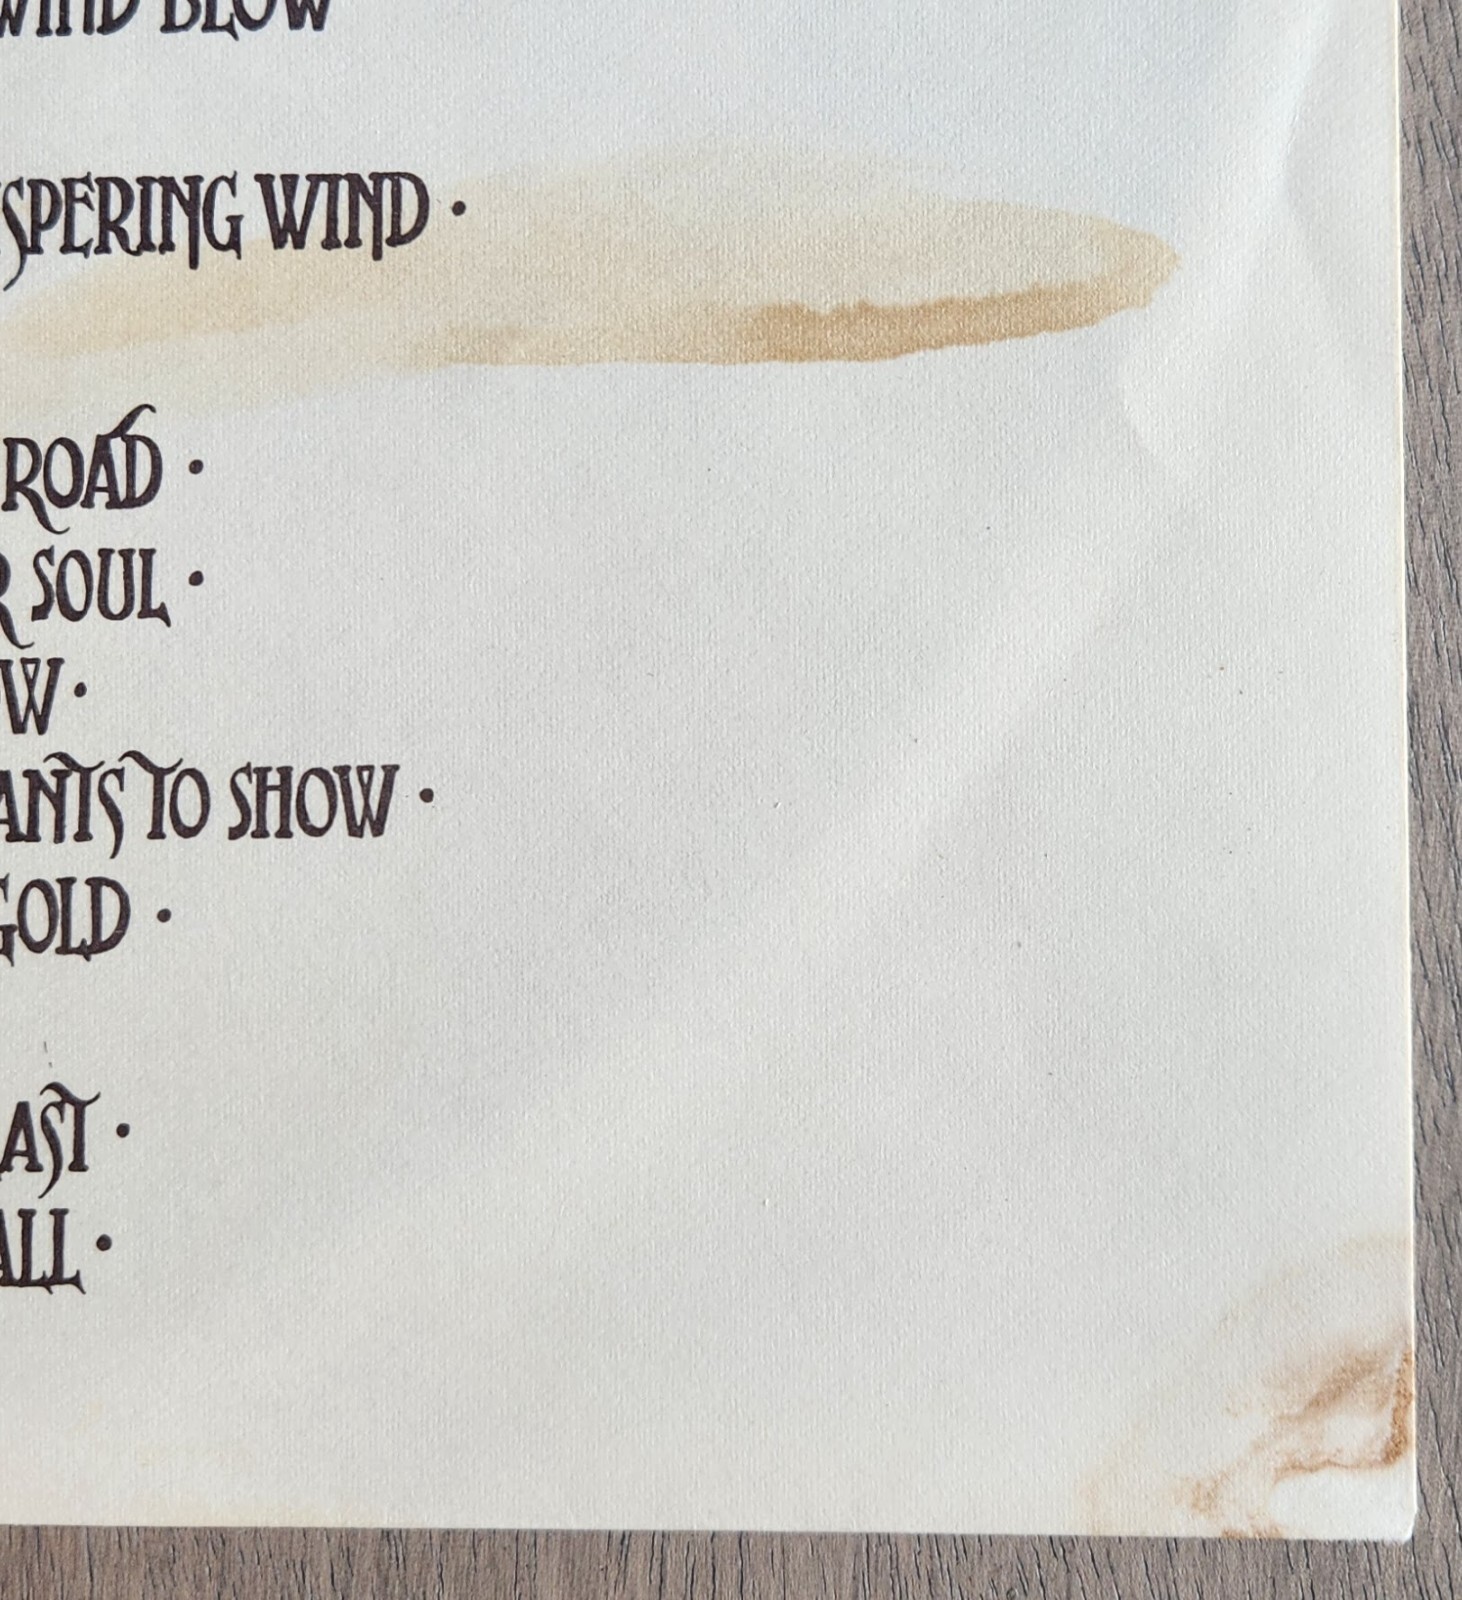 WIND BLOW
SPERING WIND •
ROAD •
R SOUL •
W •
ANTS TO SHOW •
GOLD •
AST •
ALL •